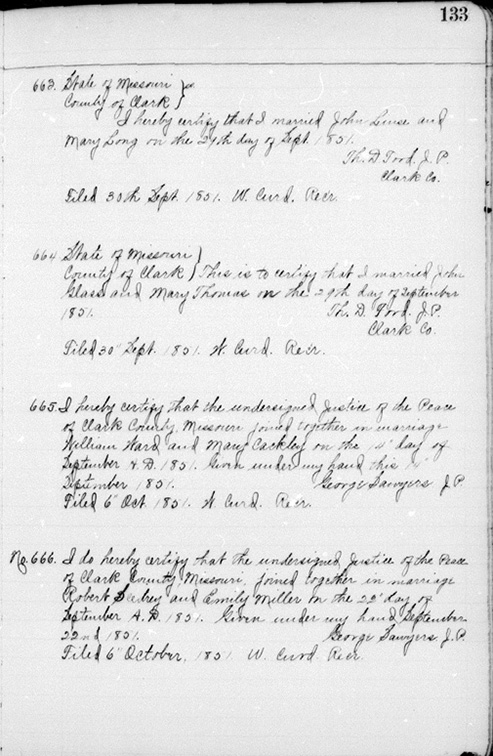 133
663. State of Missouri } ss
County of Clark }
I hereby certify that I married John and
Mary Long on the 29th day of Sept. 1851.
Th. D. Ford. J. P.
Clark Co.
Filed 30th Sept. 1851. W. Curd. Recr.
664 State of Missouri }
County of Clark } This is to certify that I married John
Glass and Mary Thomas on the 29th day of September
1851. Th. D. Ford. J. P.
Clark Co.
Filed 30" Sept. 1851. W. Curd. Recr.
665. I hereby certify that the undersigned Justice of the Peace
of Clark County, Missouri joined together in marriage
William Ward and Mary Cackley on the 4" day of
September A.D. 1851. Given under my hand this 4"
September 1851. George Sawyers J P
Filed 6" Oct. 1851. W. Curd. Recr.
No. 666. I do hereby certify that the undersigned Justice of the Peace
of Clark County, Missouri, joined together in marriage
Robert and Emily Miller on the 22" day of
September A. D. 1851. Given under my hand September
22nd 1851. George Sawyers J. P.
Filed 6" October, 1851 W. Curd Recr.